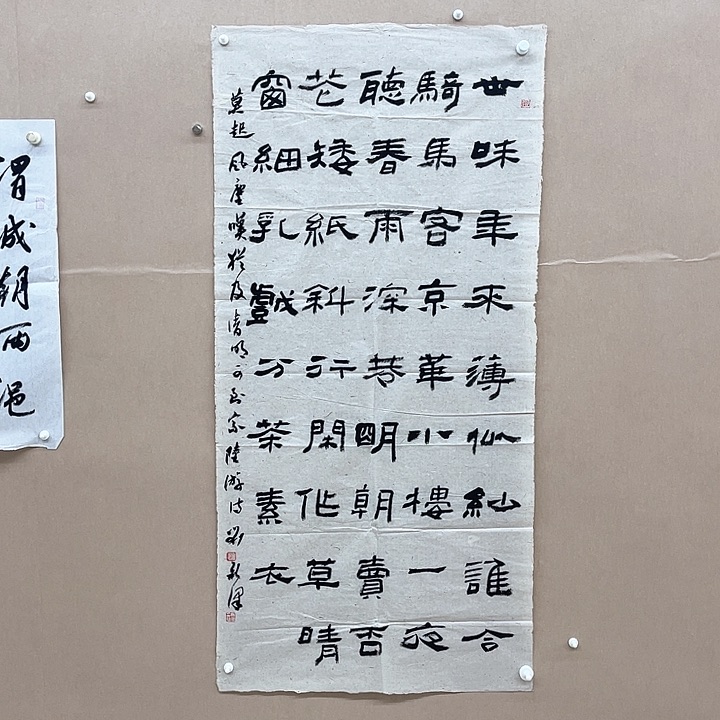 世味年来薄似紗誰令
騎馬客京華小樓一夜
聽春雨深巷明朝賣杏
花矮紙斜行閑作草晴
窗細乳戲分茶素衣
莫起風塵嘆猶及清明可到家陸游詩 劉
渭城朝雨浥